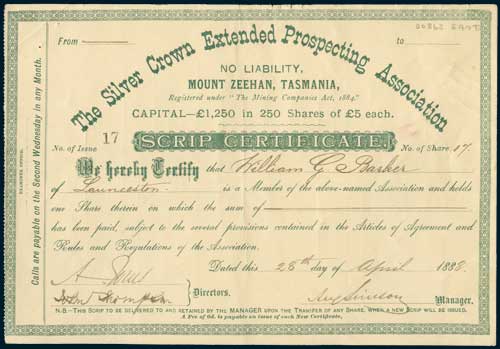 From to
The Silver Crown Extended Prospecting Association
NO LIABILITY,
MOUNT ZEEHAN, TASMANIA,
Registered under "The Mining Companies Act, 1884."
CAPITAL—£1,250 in 250 Shares of £5 each.
SCRIP CERTIFICATE
No. of Issue 17 No. of Share 17.
We hereby Certify that William G Barker
of Launceston is a Member of the above-named Association and holds
one Share therein on which the sum of
has been paid, subject to the several provisions contained in the Articles of Agreement and
Rules and Regulations of the Association.
Dated this 28th day of April 1888.
John Thompson
Directors.
Manager.
N.B.—THIS SCRIP TO BE DELIVERED TO AND RETAINED BY THE MANAGER UPON THE TRANSFER OF ANY SHARE, WHEN A NEW SCRIP WILL BE ISSUED.
A Fee of 6d. is payable on issue of each new Certificate.
Calls are payable on the Second Wednesday in any Month.
EXAMINER OFFICE.